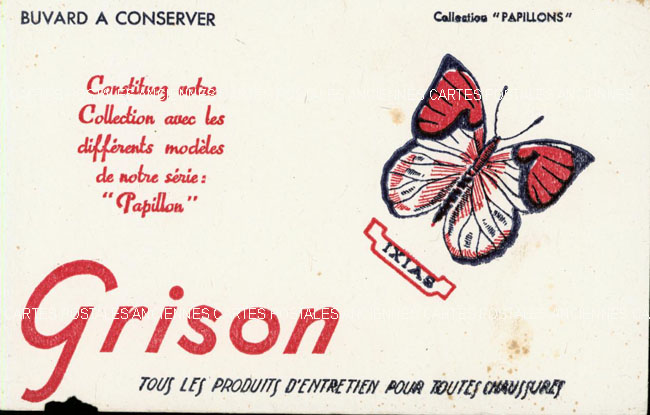 BUVARD A CONSERVER
Collection "PAPILLONS"
Constituez votre
Collection avec les
différents modèles
de notre série:
"Papillon"
IXIAS
Grison
TOUS LES PRODUITS D'ENTRETIEN POUR TOUTES CHAUSSURES
CARTES POSTALES ANCIENNES CARTES POSTALES ANCIENNES CARTES POSTALES
CARTES POSTALES ANCIENNES CARTES POSTALES ANCIENNES CARTES POSTALES